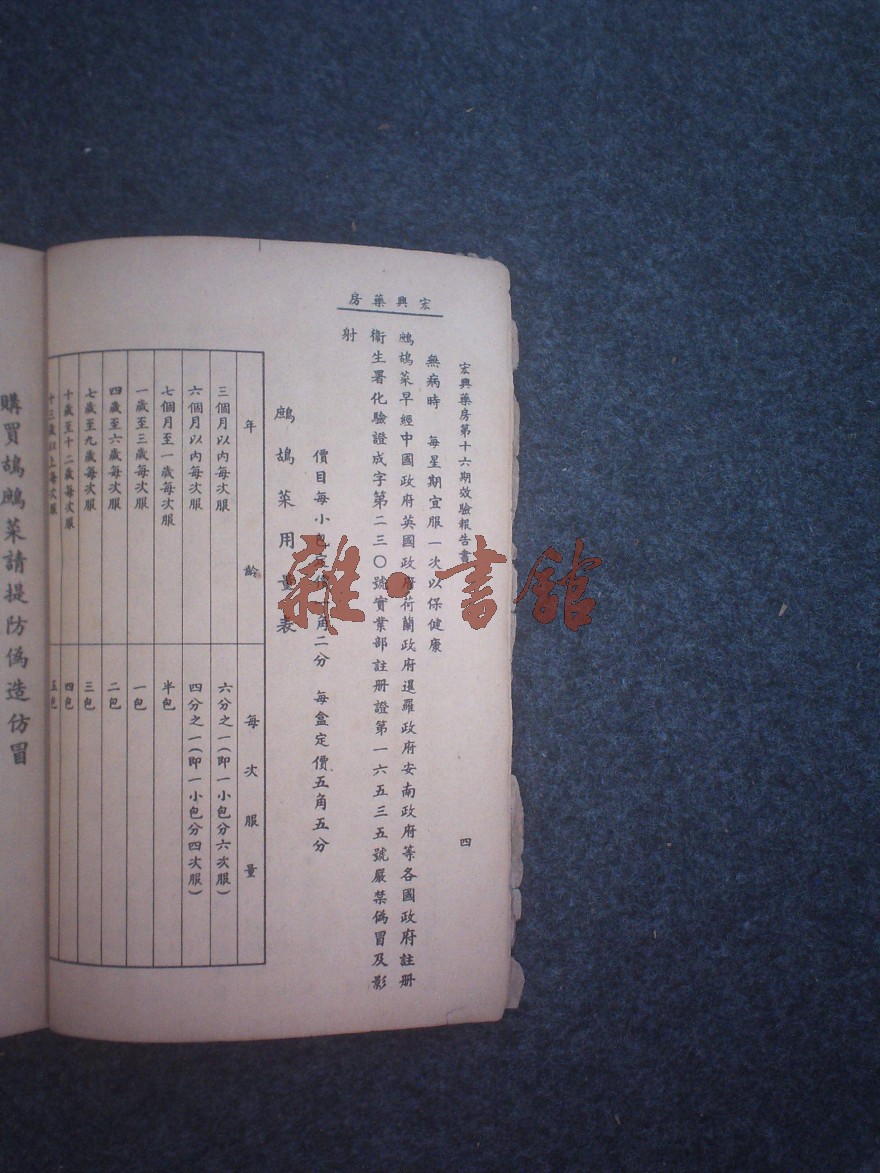 宏興藥房
宏興藥房第十六期效驗報告書
四
無病時　每星期宜服一次以保健康
鷓鴣菜早經中國政府英國政府荷蘭政府暹羅政府安南政府等各國政府註册
衛生署化驗證成字第二三〇號實業部註册證第一六五三五號嚴禁偽冒及影
射
價目每小包定價一角二分　每盒定價五角五分
鷓鴣菜用量表
年齡　每次服量
三個月以内每次服　六分之一(即一小包分六次服)
六個月以内每次服　四分之一(即一小包分四次服)
七個月至一歲每次服　半包
一歲至三歲每次服　一包
四歲至六歲每次服　二包
七歲至九歲每次服　三包
十歲至十二歲每次服　四包
十三歲以上每次服　五包
購買鴣鷓菜請提防偽造仿冒
雜·書館